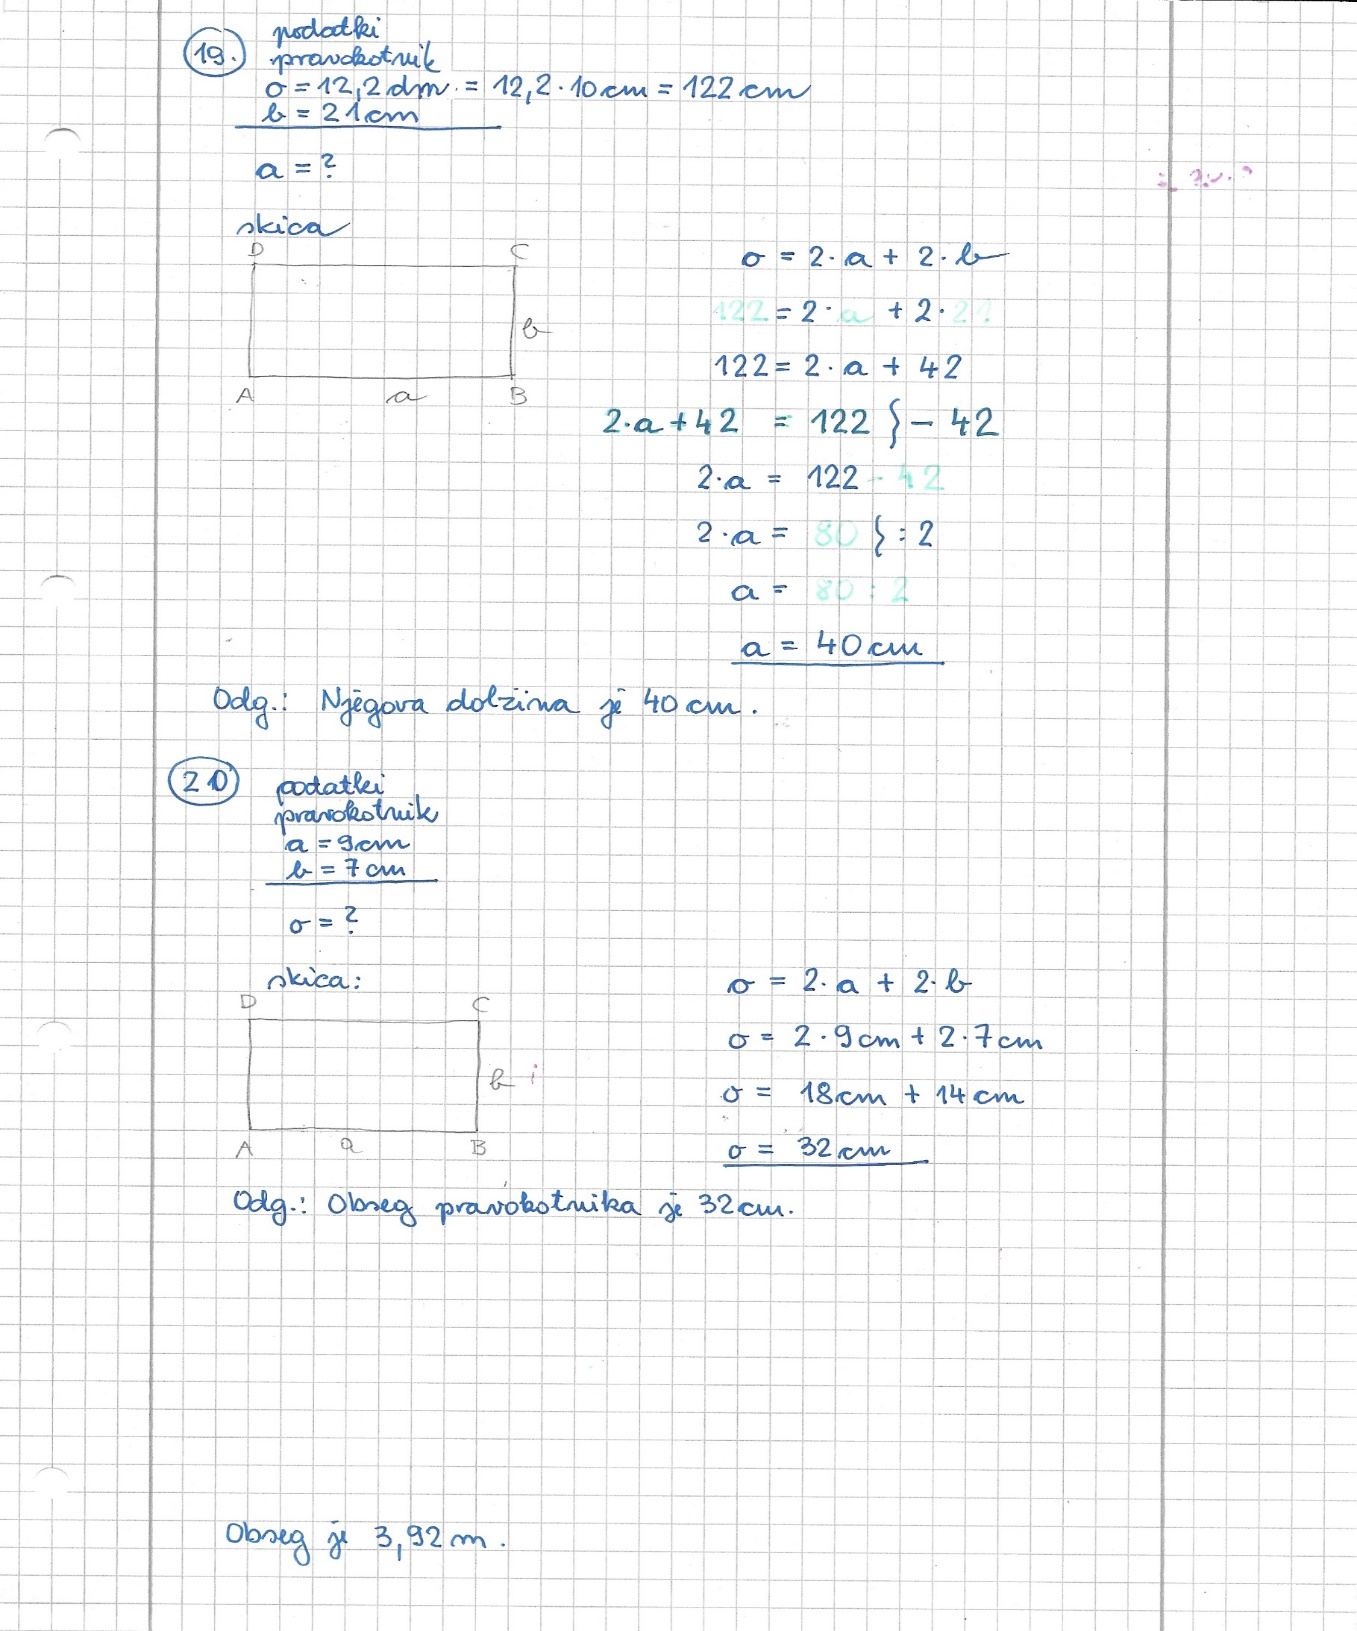 19. podatki
pravokotnik
o = 12,2 dm = 12,2 · 10 cm = 122 cm
b = 21 cm
a = ?
skica
D C
b
A a B
o = 2 · a + 2 · b
122 = 2 · a + 2 · 21
122 = 2 · a + 42
2 · a + 42 = 122 } - 42
2 · a = 122 - 42
2 · a = 80 } : 2
a = 80 : 2
a = 40 cm
Odg.: Njegova dolžina je 40 cm.
20 podatki
pravokotnik
a = 9 cm
b = 7 cm
o = ?
skica:
D C
b
A a B
o = 2 · a + 2 · b
o = 2 · 9 cm + 2 · 7 cm
o = 18 cm + 14 cm
o = 32 cm
Odg.: Obseg pravokotnika je 32 cm.
Obseg je 3,92 m.